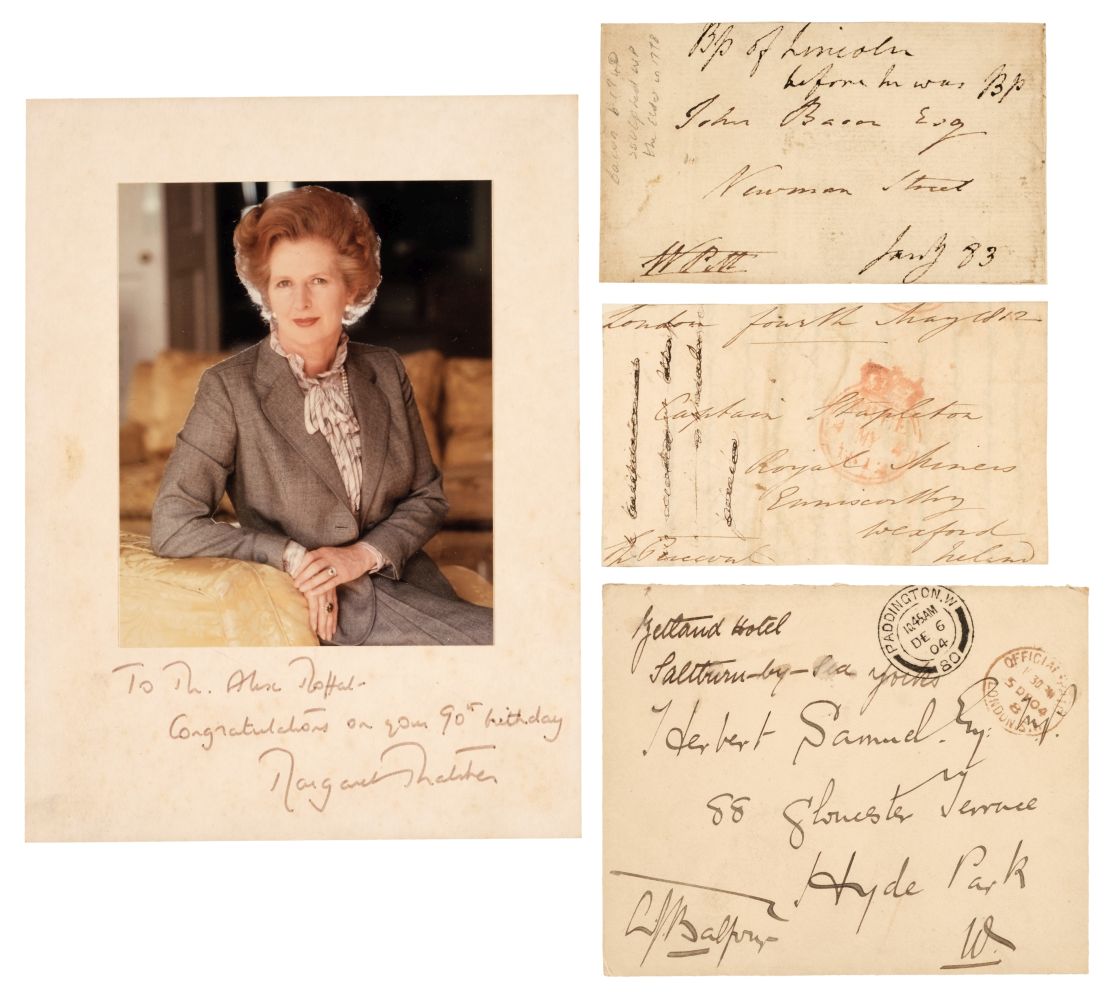 To Mr. Alex Moffat
Congratulations on your 90th birthday
Margaret Thatcher
Bp of Lincoln
before he was Bp
John Bacon Esq
Newman Street
W Pitt
Jany 83
the elder in 1778
London fourth May 1812
Captain Stapleton
Royal Miners
Enniscorthy
Wexford
Ireland
Perceval
Zetland Hotel
Saltburn-by-Sea Yorks
Herbert Samuel Esq: M.P.
88 Gloucester Terrace
Hyde Park
W.
A J Balfour
PADDINGTON.W
10.45AM
DE 6
04
80
OFFICIAL PAID
5 DE 04
LONDON